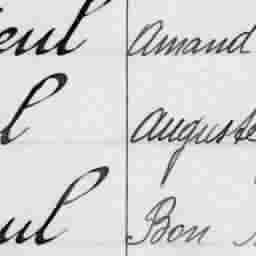 eul Amand
l Auguste
ul Bon